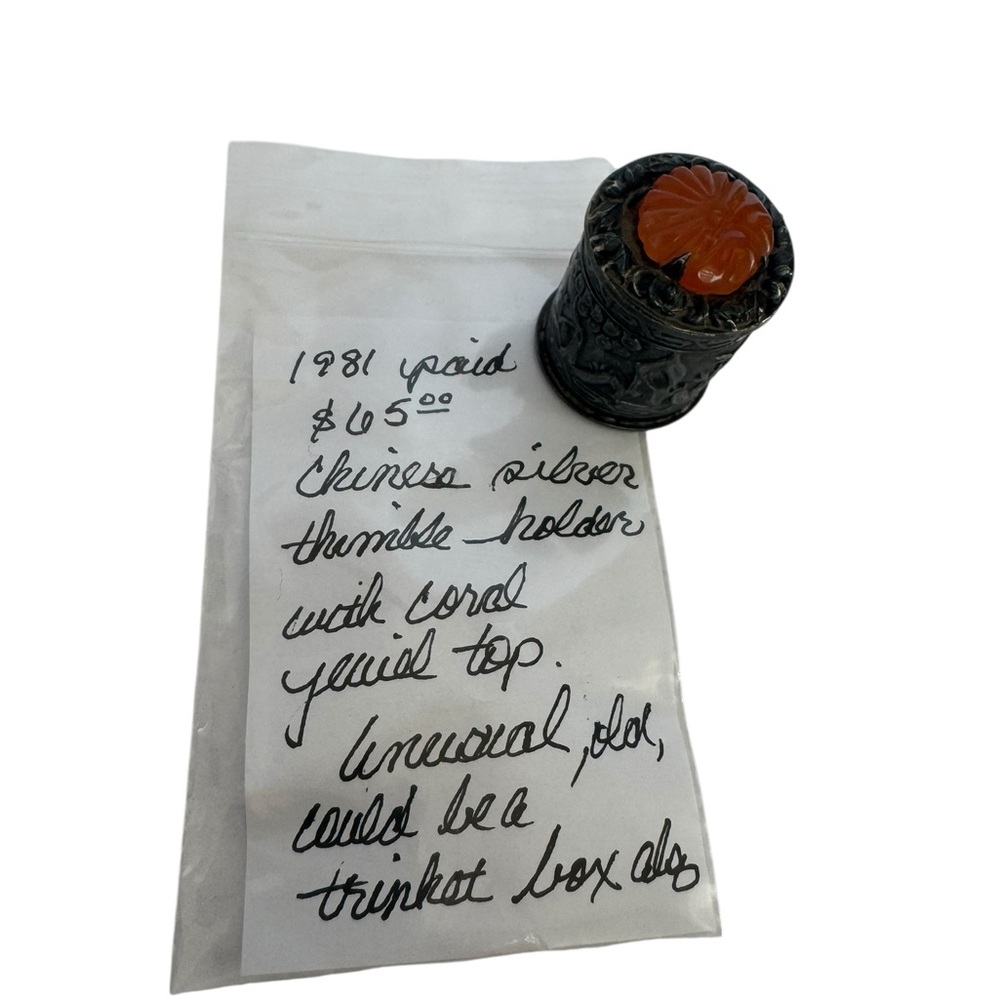 1981 paid
$65.00
Chinese silver
thimble holder
with coral
top.
Unusual, old,
could be a
trinket box also